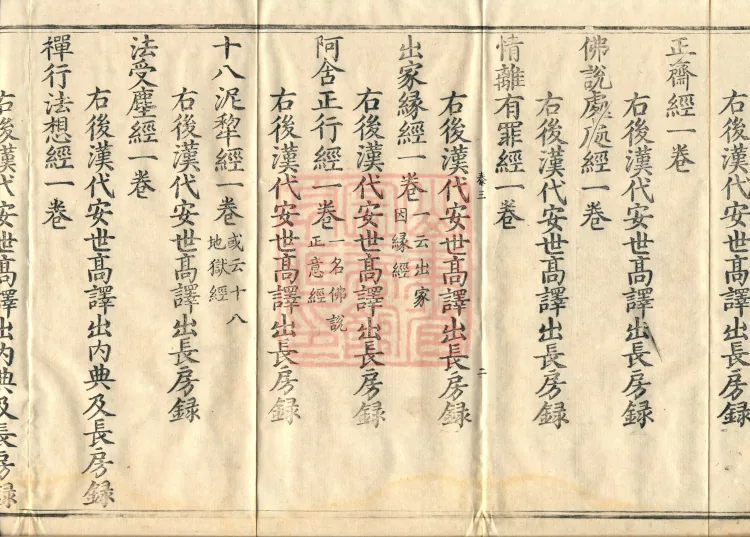 右後漢代安世髙譯出長房録
正齋經一卷
右後漢代安世髙譯出長房録
佛說處處經一卷
右後漢代安世髙譯出長房録
情離有罪經一卷
叅三 二
右後漢代安世髙譯出長房録
出家縁經一卷 一云出家因縁經
右後漢代安世髙譯出長房録
阿含正行經一卷 一名佛說正意經
右後漢代安世髙譯出長房録
十八泥犂經一卷 或云十八地獄經
右後漢代安世髙譯出長房録
法受塵經一卷
右後漢代安世髙譯出内典及長房録
禪行法想經一卷
右後漢代安世髙譯出内典及長房録